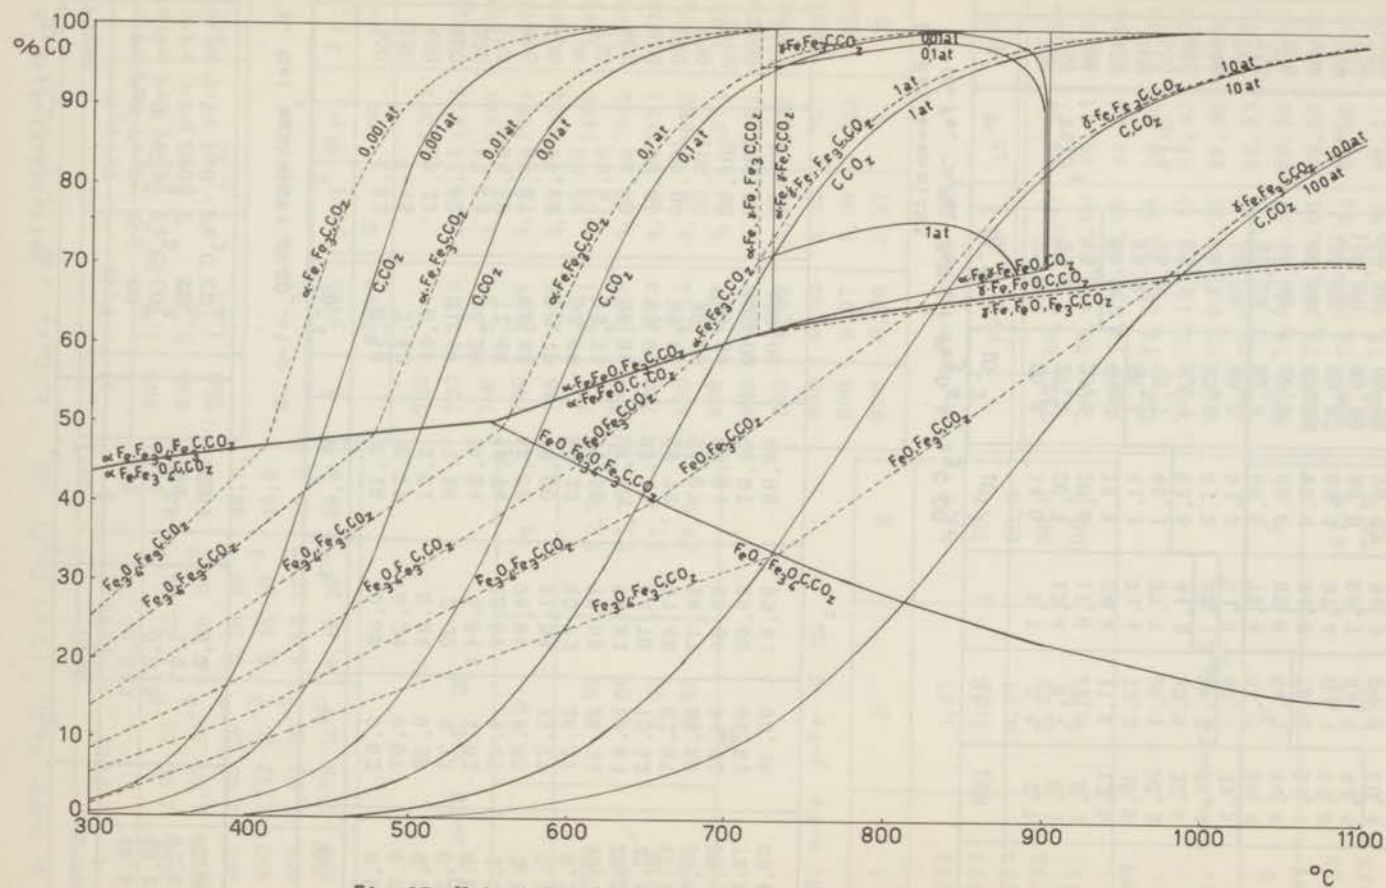 100
% CO
90
80
70
60
50
40
30
20
10
0
300
400
500
600
700
800
900
1000
1100
°C
0,001at
0,001at
0,01at
0,01at
0,1at
0,1at
γ-Fe,Fe₃C,CO₂
0,01at
0,1at
1at
1at
10at
10at
100at
100at
α-Fe,Fe₃C,CO₂
C,CO₂
α-Fe,Fe₃C,CO₂
C,CO₂
α-Fe,Fe₃C,CO₂
C,CO₂
α-Fe,Fe₃C,CO₂
α-Fe, γ-Fe, Fe₃C,CO₂
α-Fe,γ-Fe,C,CO₂
γ-Fe,Fe₃C,CO₂
C,CO₂
1at
γ-Fe,Fe₃C,CO₂
C,CO₂
γ-Fe,Fe₃C,CO₂
C,CO₂
α-Fe,γ-Fe,FeO,CO₂
γ-Fe,FeO,C,CO₂
γ-Fe,FeO,Fe₃C,CO₂
α-Fe,FeO,Fe₃C,CO₂
α-Fe,FeO,C,CO₂
α-Fe,Fe₃O₄,Fe₃C,CO₂
α-Fe,Fe₃O₄,C,CO₂
FeO,Fe₃C,CO₂
FeO,Fe₃O₄,Fe₃C,CO₂
FeO,Fe₃C,CO₂
FeO,Fe₃C,CO₂
Fe₃O₄,Fe₃C,CO₂
Fe₃O₄,Fe₃C,CO₂
Fe₃O₄,Fe₃C,CO₂
Fe₃O₄,Fe₃C,CO₂
Fe₃O₄,Fe₃C,CO₂
Fe₃O₄,Fe₃C,CO₂
FeO,Fe₃O₄,C,CO₂